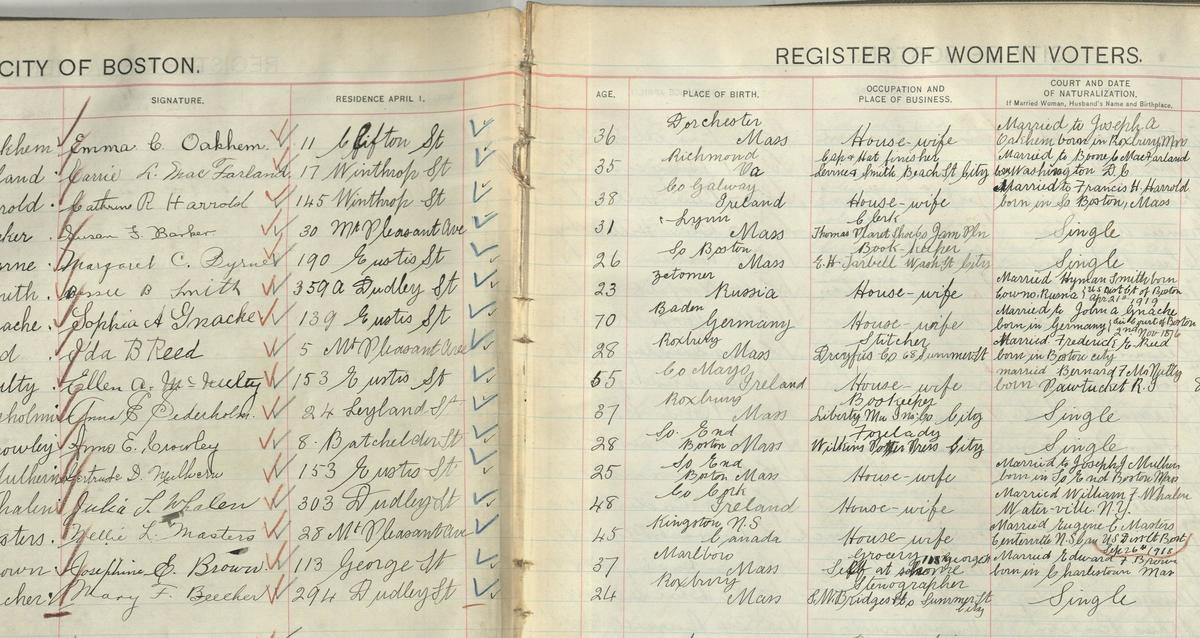 CITY OF BOSTON.
REGISTER OF WOMEN VOTERS.
SIGNATURE. RESIDENCE APRIL 1. AGE. PLACE OF BIRTH. OCCUPATION AND PLACE OF BUSINESS. COURT AND DATE OF NATURALIZATION.
If Married Woman, Husband's Name and Birthplace.
Emma C. Oakhem 11 Clifton St 36 Dorchester Mass House-wife Married to Joseph A Oakhem born in Roxbury
Carrie L. MacFarland 17 Winthrop St 35 Richmond Va Cap & Hat finisher Smith Beach St City Married to Boone C MacFarland Washington D.C
Cathrine R Harrold 145 Winthrop St 38 Co Galway Ireland House-wife Married to Francis H. Harrold born in So Boston, Mass
Susan F. Barker 30 Mt Pleasant Ave 31 Lynn Mass Clerk Thomas Jam Pln Single
Margaret C. Byrne 190 Eustis St 26 So Boston Mass Book-keeper E.H. Tarbell Wash St City Single
B Smith 359A Dudley St 23 Russia House-wife Married Hyman Smith born Russia Apr 21st 1919
Sophia A Gnacke 139 Eustis St 70 Baden Germany House-wife Married to John A Gnacke born in Germany Nov 1876
Ida B Reed 5 Mt Pleasant Ave 28 Roxbury Mass Stitcher Dreyfus Co 68 Summer St Married Frederick E. Reed born in Boston city
Ellen A. 153 Eustis St 55 Co Mayo Ireland House-wife married Bernard F born Pawtucket R.I
Anna E Cederholm. 24 Leyland St 37 Roxbury Mass Bookeeper Liberty Mu Ins Co City Single
Anna E. Crowley 8. Batchelder St 28 So. End Boston Mass Forelady Press City Single
Gertrude D. Mulhern 153 Eustis St 25 So End Boston Mass House-wife Married to Joseph J Mulhern born in So End Boston Mass
Julia L Whalen 303 Dudley St 48 Co Cork Ireland House-wife Married William F Whalen Water-ville N.Y.
Nellie L. Masters 28 Mt Pleasant Ave 45 Kingston, N.S Canada House-wife Married Eugene C Masters Centerville N.S Can US Boston Sep 26th 1918
Josephine E. Brown 113 George St 37 Marlboro Mass Grocery George Self at home Married Edward F Brown born in Charlestown Mas
Mary F. Beecher 294 Dudley St 24 Roxbury Mass Stenographer Bridges Co Summer St City Single